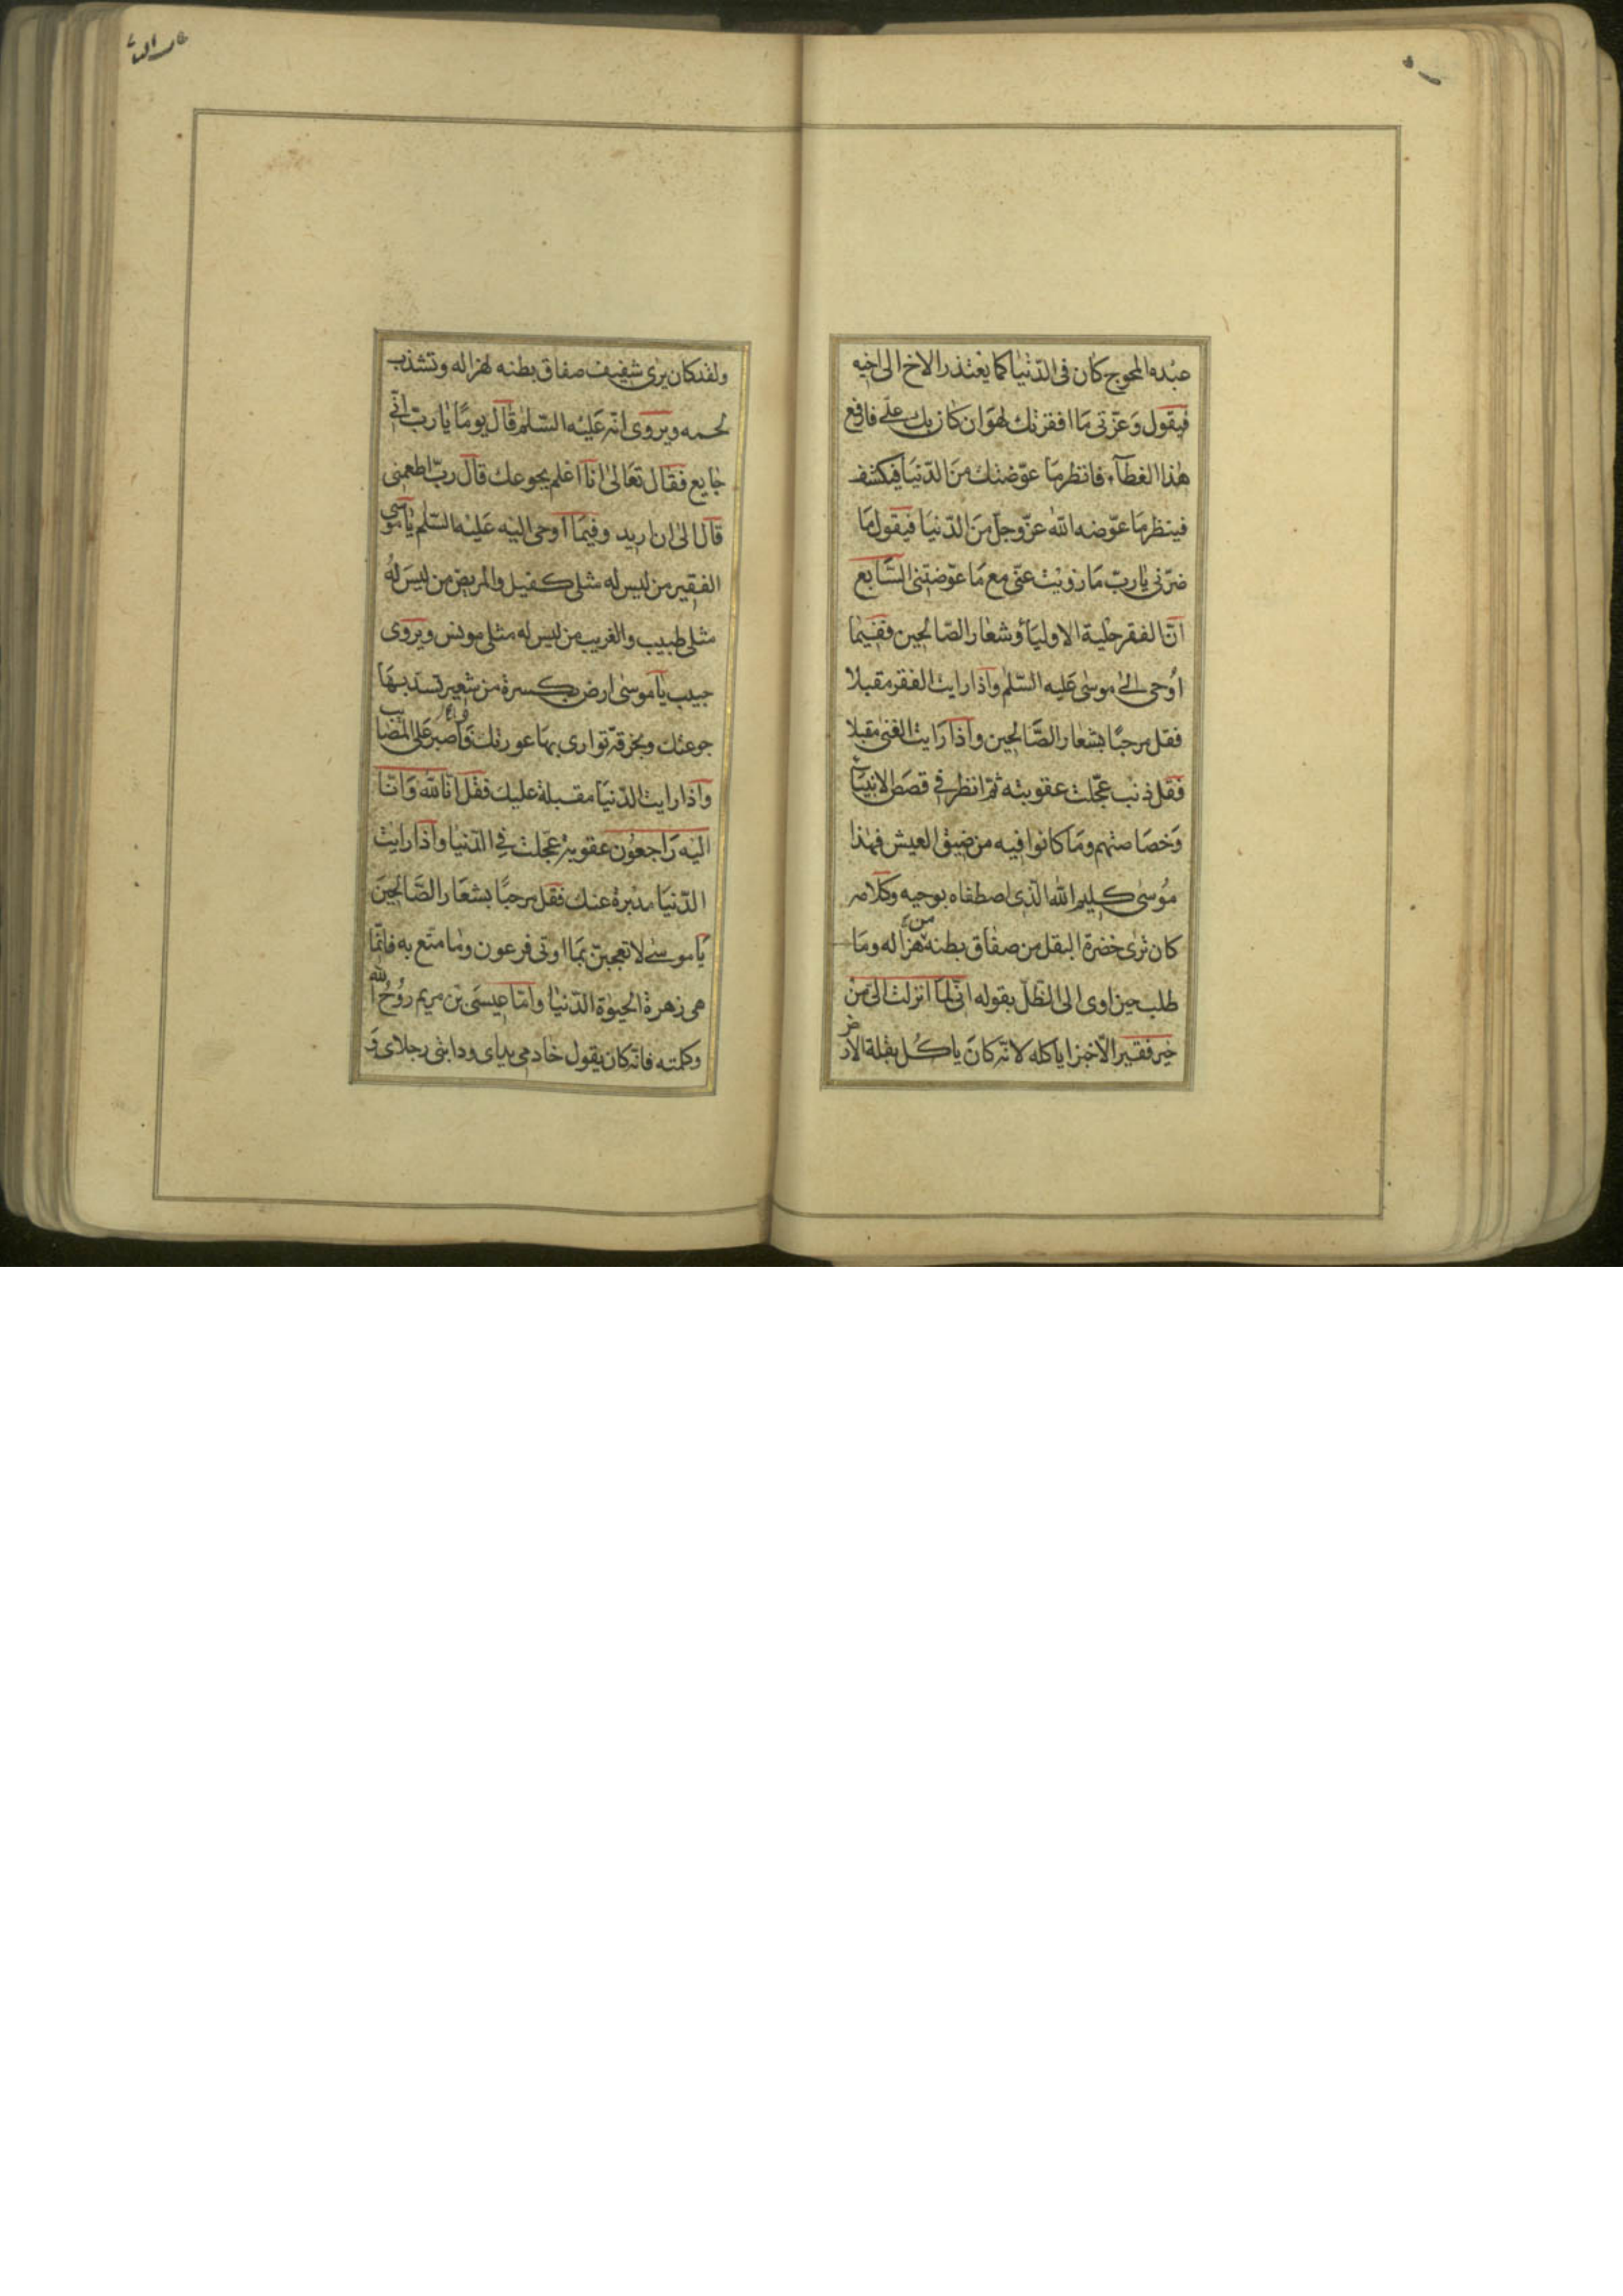 عبده المحوج كان فى الدّنيا كما يعتذر الاخ الى اخيه
فيقول وَعزّتى مَا افقرتك لهوَان كان بك علىّ فارفع
هٰذا الغطآء فانظر مَا عوّضتك منَ الدّنيَا فيكشف
فينظر مَا عوّضه اللّه عزّوجلّ منَ الدّنيَا فيقول مَا
ضرّنى يٰا ربّ مَا زويت عنّى مع مَا عوّضتنى السّابع
انّ الفقر حلية الاوليَآء وشعٰار الصّالحين ففيمٰا
اُوحى الىٰ موسٰى عَليه السّلم واذا رايت الفقر مقبلا
فقل مرحبًا بشعٰار الصَّالحين واذا رَايت الغنى مقبلا
فقل ذنب عجّلت عقوبته ثمّ انظر فى قصَص الانبيَآء
وَخصَاصتهم ومَا كانوا فيه من ضيق العيش فهٰذا
مُوسٰى كليم اللّه الّذى اصطفاه بوحيه وكلامه
كان ترٰى خضرة البقل من صفاق بطنه من هزاله ومَا
طلب حين اوى الى الظلّ بقوله انّى لمَا انزلت الىّ من
خير فقير الّا خبزا ياكله لانّه كانَ ياكُل بقلة الارض
ولقد كان يرٰى شفيف صفاق بطنه لهزاله وتشذب
لحمه ويروى انّه عَليْه السّلم قال يومًا يٰا ربّ انّى
جٰايع فقال تعَالىٰ انَا اعلم بجوعك قال ربّ اطعمنى
قال الىٰ ان اريد وفيمَا اوحى اليْه عَليْه السّلم يٰا موسى
الفقير من ليس له مثلى كفيل والمريض من ليسَ لهُ
مثلى طبيب والغريب من ليس له مثلى مونس ويروى
حبيب يا موسٰى ارض بكسرة من شعير تسدّ بهَا
جوعتك وبخرقة توارى بهَا عورتك وَاصبر عَلى المصَائب
واذا رايت الدّنيَا مقبلة عليك فقل انّا للّه وَانّا
اليْه رَاجعُون عقوبة عجّلت فى الدّنيا واذا رايت
الدّنيَا مدبرة عنك فقل مرحبًا بشعَار الصَّالحينَ
يَا موسٰى لا تعجبنّ بمَا اوتى فرعون ومٰا متّع به فانّمَا
هى زهرة الحيوٰة الدّنيٰا وامّا عيسَى بْن مريم روُحُ اللّه
وكلمته فانّه كان يقول خادمى يداى ودابتى رجلاى وَ